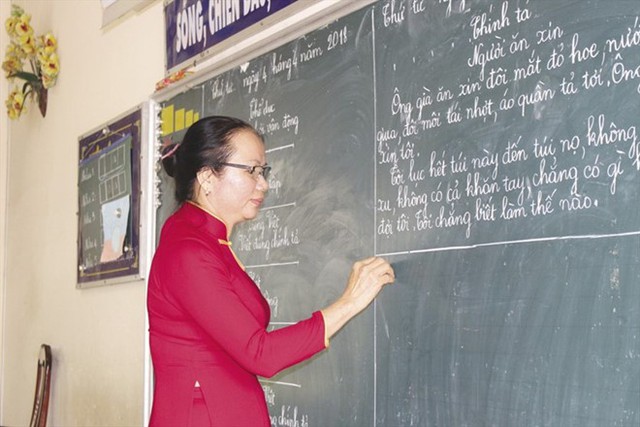 SỐNG, CHIẾN ĐẤU,
Thứ tư, ngày 4 tháng 4 năm 2018
Thể dục
vận động
Việt
chính tả
chính tả
Thứ tư
Chính tả
Người ăn xin
Ông già ăn xin đôi mắt đỏ hoe, nướ
qua đôi môi tái nhợt, áo quần tả tơi. Ông
xin tôi.
Tôi lục hết túi này đến túi nọ, không
xu, không có cả khăn tay, chẳng có gì
đợi tôi. Tôi chẳng biết làm thế nào.